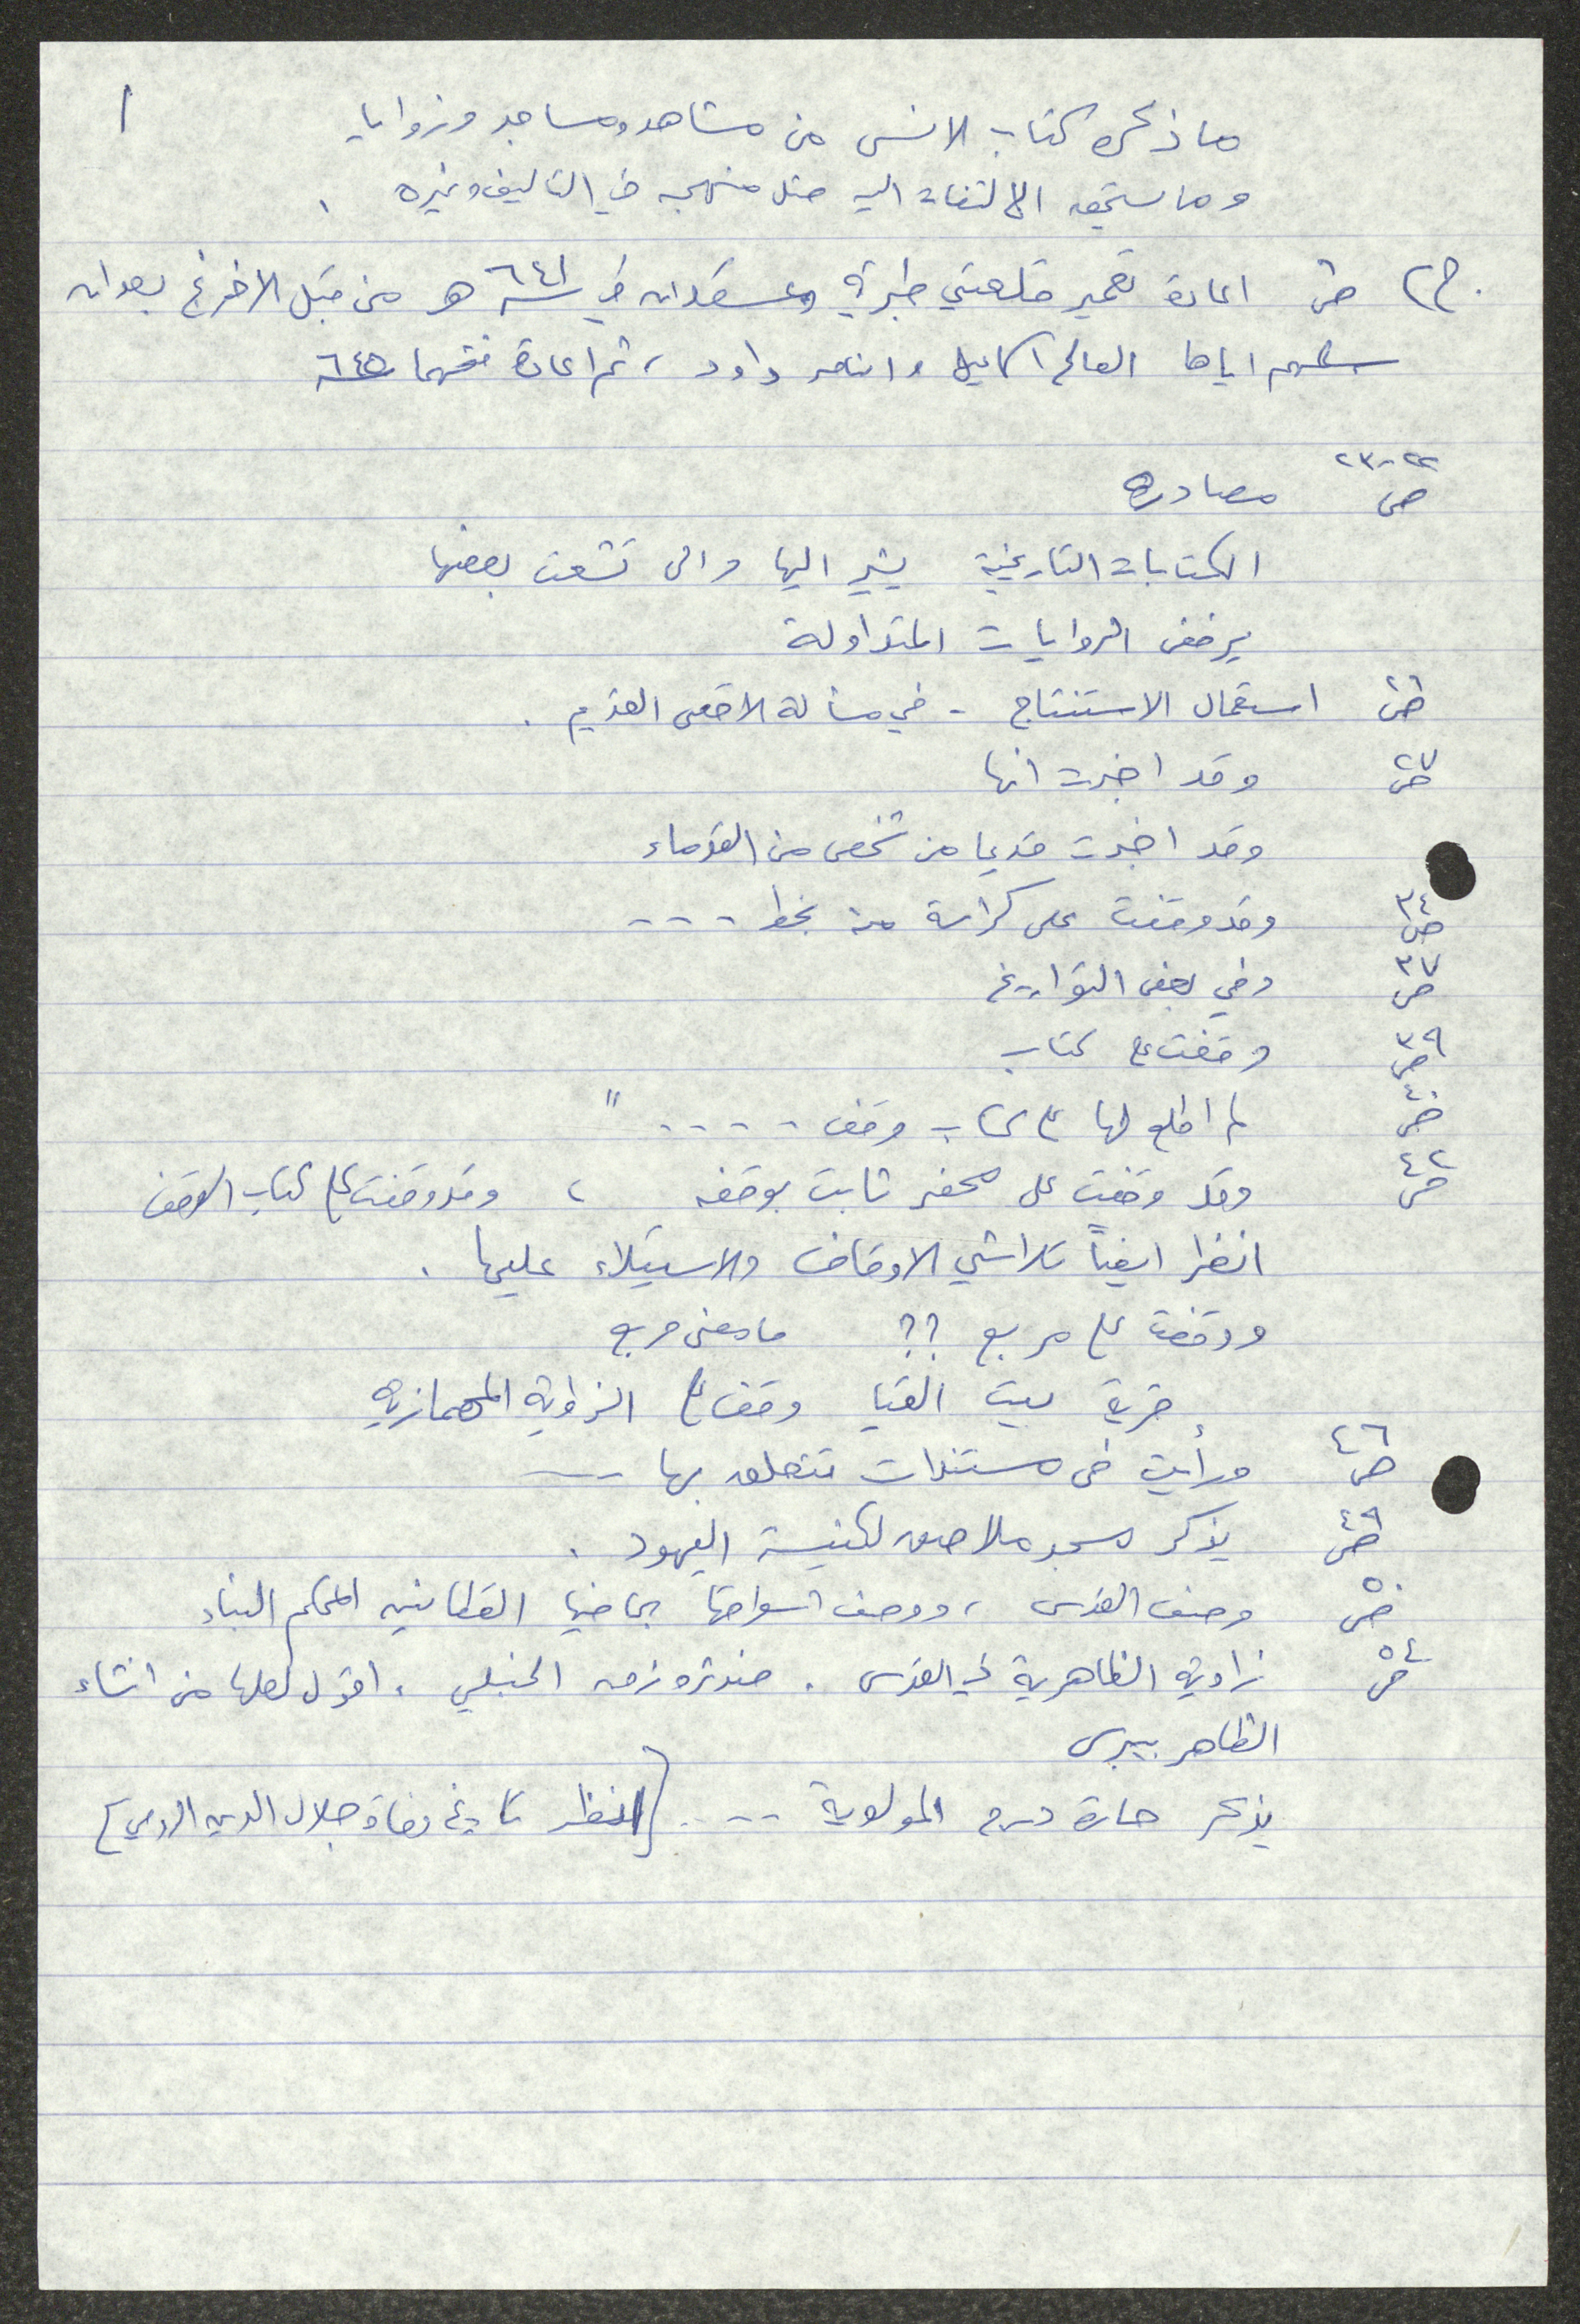 ١
ما ذكره كتاب الانس من مشاهد ومساجد وزوايا
وما يستحق الالتفات اليه مثل منهجه في التاليف وغيره .
ج٢ ص اعادة تعمير قلعتي طبرية وعسقلان في سنة ٦٤١ هـ من قبل الافرنج بعد ان
سلمهم اياها الصالح اسماعيل والناصر داود ، ثم اعادة فتحهما سنة ٦٤٥
ص ٢٢-٢٣ مصادره
الكتابات التاريخية يشير اليها والى تشعث بعضها
يرفض الروايات المتداولة
ص استعمال الاستنتاج - في مسألة الاقصى القديم .
ص ٢٧ وقد اخبرت انها
وقد اخبرت قديما من شخص من القدماء
ص ٣٤ وقد وقفت على كراسة منه بخط - - - -
ص ٣٧ وفي بعض التواريخ
ص ٣٩ وقفت على كتاب
ص ٤٠ لم اطلع لها على كتاب وقف - - - - - "
ص ٤٢ وقد وقفت على محضر ثابت بوقفه ، وقد وقفت على كتاب الوقف
انظر ايضاً تلاشي الاوقاف والاستيلاء عليها .
ووقفت على مربع ؟؟ ما معنى مربع
قرية بيت لقيا وقف على الزاوية المهمازية
ص ٤٦ ورأيت في مستندات تتعلق بها ---
ص ٤٩ يذكر مسجد ملاصق لكنيسة اليهود .
ص ٥٠ وصف القدس ، ووصف اسواقها بما فيها القطانين المحكم البناء
ص ٥٤ زاوية الظاهرية في القدس . مندثرة زمن الحنبلي . اقول لعلها من انشاء
الظاهر بيبرس
يذكر حارة درج المولوية - - - [انظر تاريخ وفاة جلال الدين الرومي]